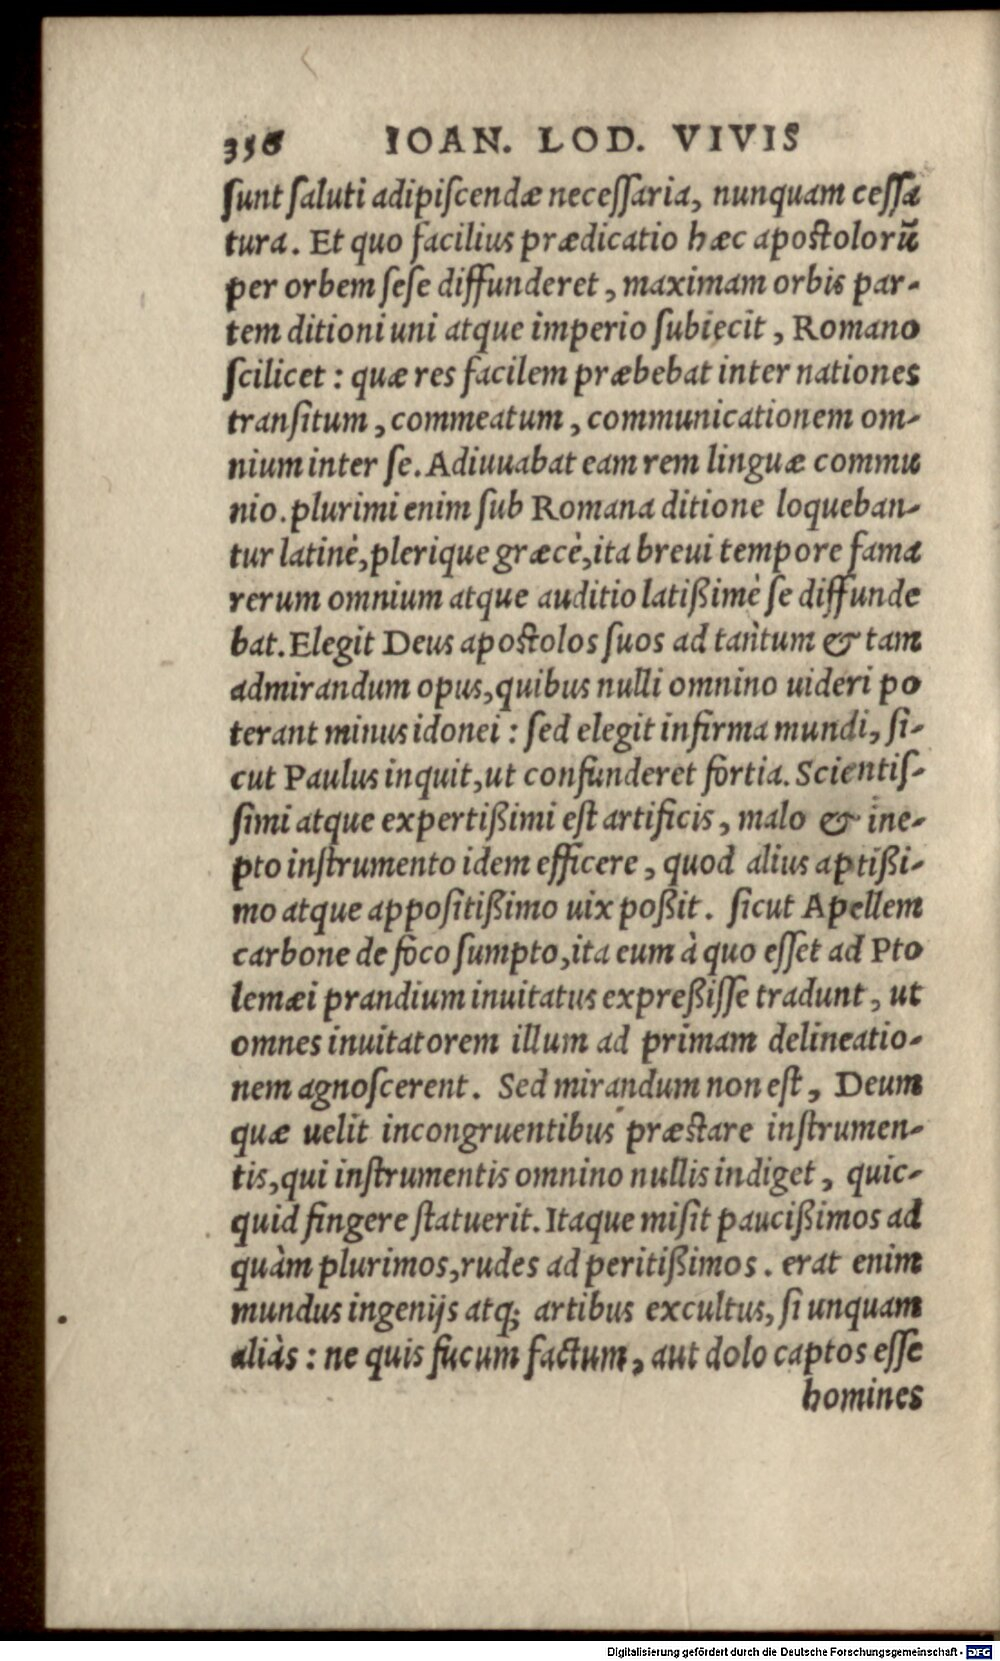 356 IOAN. LOD. VIVIS
ſunt ſaluti adipiſcendæ neceſſaria, nunquam ceſſa
tura. Et quo facilius prædicatio hæc apoſtolorũ
per orbem ſeſe diffunderet, maximam orbis par-
tem ditioni uni atque imperio ſubięcit, Romano
ſcilicet: quæ res facilem præbebat inter nationes
tranſitum, commeatum, communicationem om-
nium inter ſe. Adiuuabat eam rem linguæ commu
nio. plurimi enim ſub Romana ditione loqueban-
tur latinè, plerique græcè, ita breui tempore fama
rerum omnium atque auditio latißimè ſe diffunde
bat. Elegit Deus apoſtolos ſuos ad tantum & tam
admirandum opus, quibus nulli omnino uideri po
terant minus idonei: ſed elegit infirma mundi, ſi-
cut Paulus inquit, ut confunderet fortia. Scientiſ-
ſimi atque expertißimi eſt artificis, malo & ine-
pto inſtrumento idem efficere, quod alius aptißi-
mo atque appoſitißimo uix poßit. ſicut Apellem
carbone de foco ſumpto, ita eum à quo eſſet ad Pto
lemæi prandium inuitatus expreßiſſe tradunt, ut
omnes inuitatorem illum ad primam delineatio-
nem agnoſcerent. Sed mirandum non eſt, Deum
quæ uelit incongruentibus præſtare inſtrumen-
tis, qui inſtrumentis omnino nullis indiget, quic-
quid fingere ſtatuerit. Itaque miſit paucißimos ad
quàm plurimos, rudes ad peritißimos. erat enim
mundus ingenijs atq; artibus excultus, ſi unquam
aliàs: ne quis fucum factum, aut dolo captos eſſe
homines
Digitalisierung gefördert durch die Deutsche Forschungsgemeinschaft - DFG